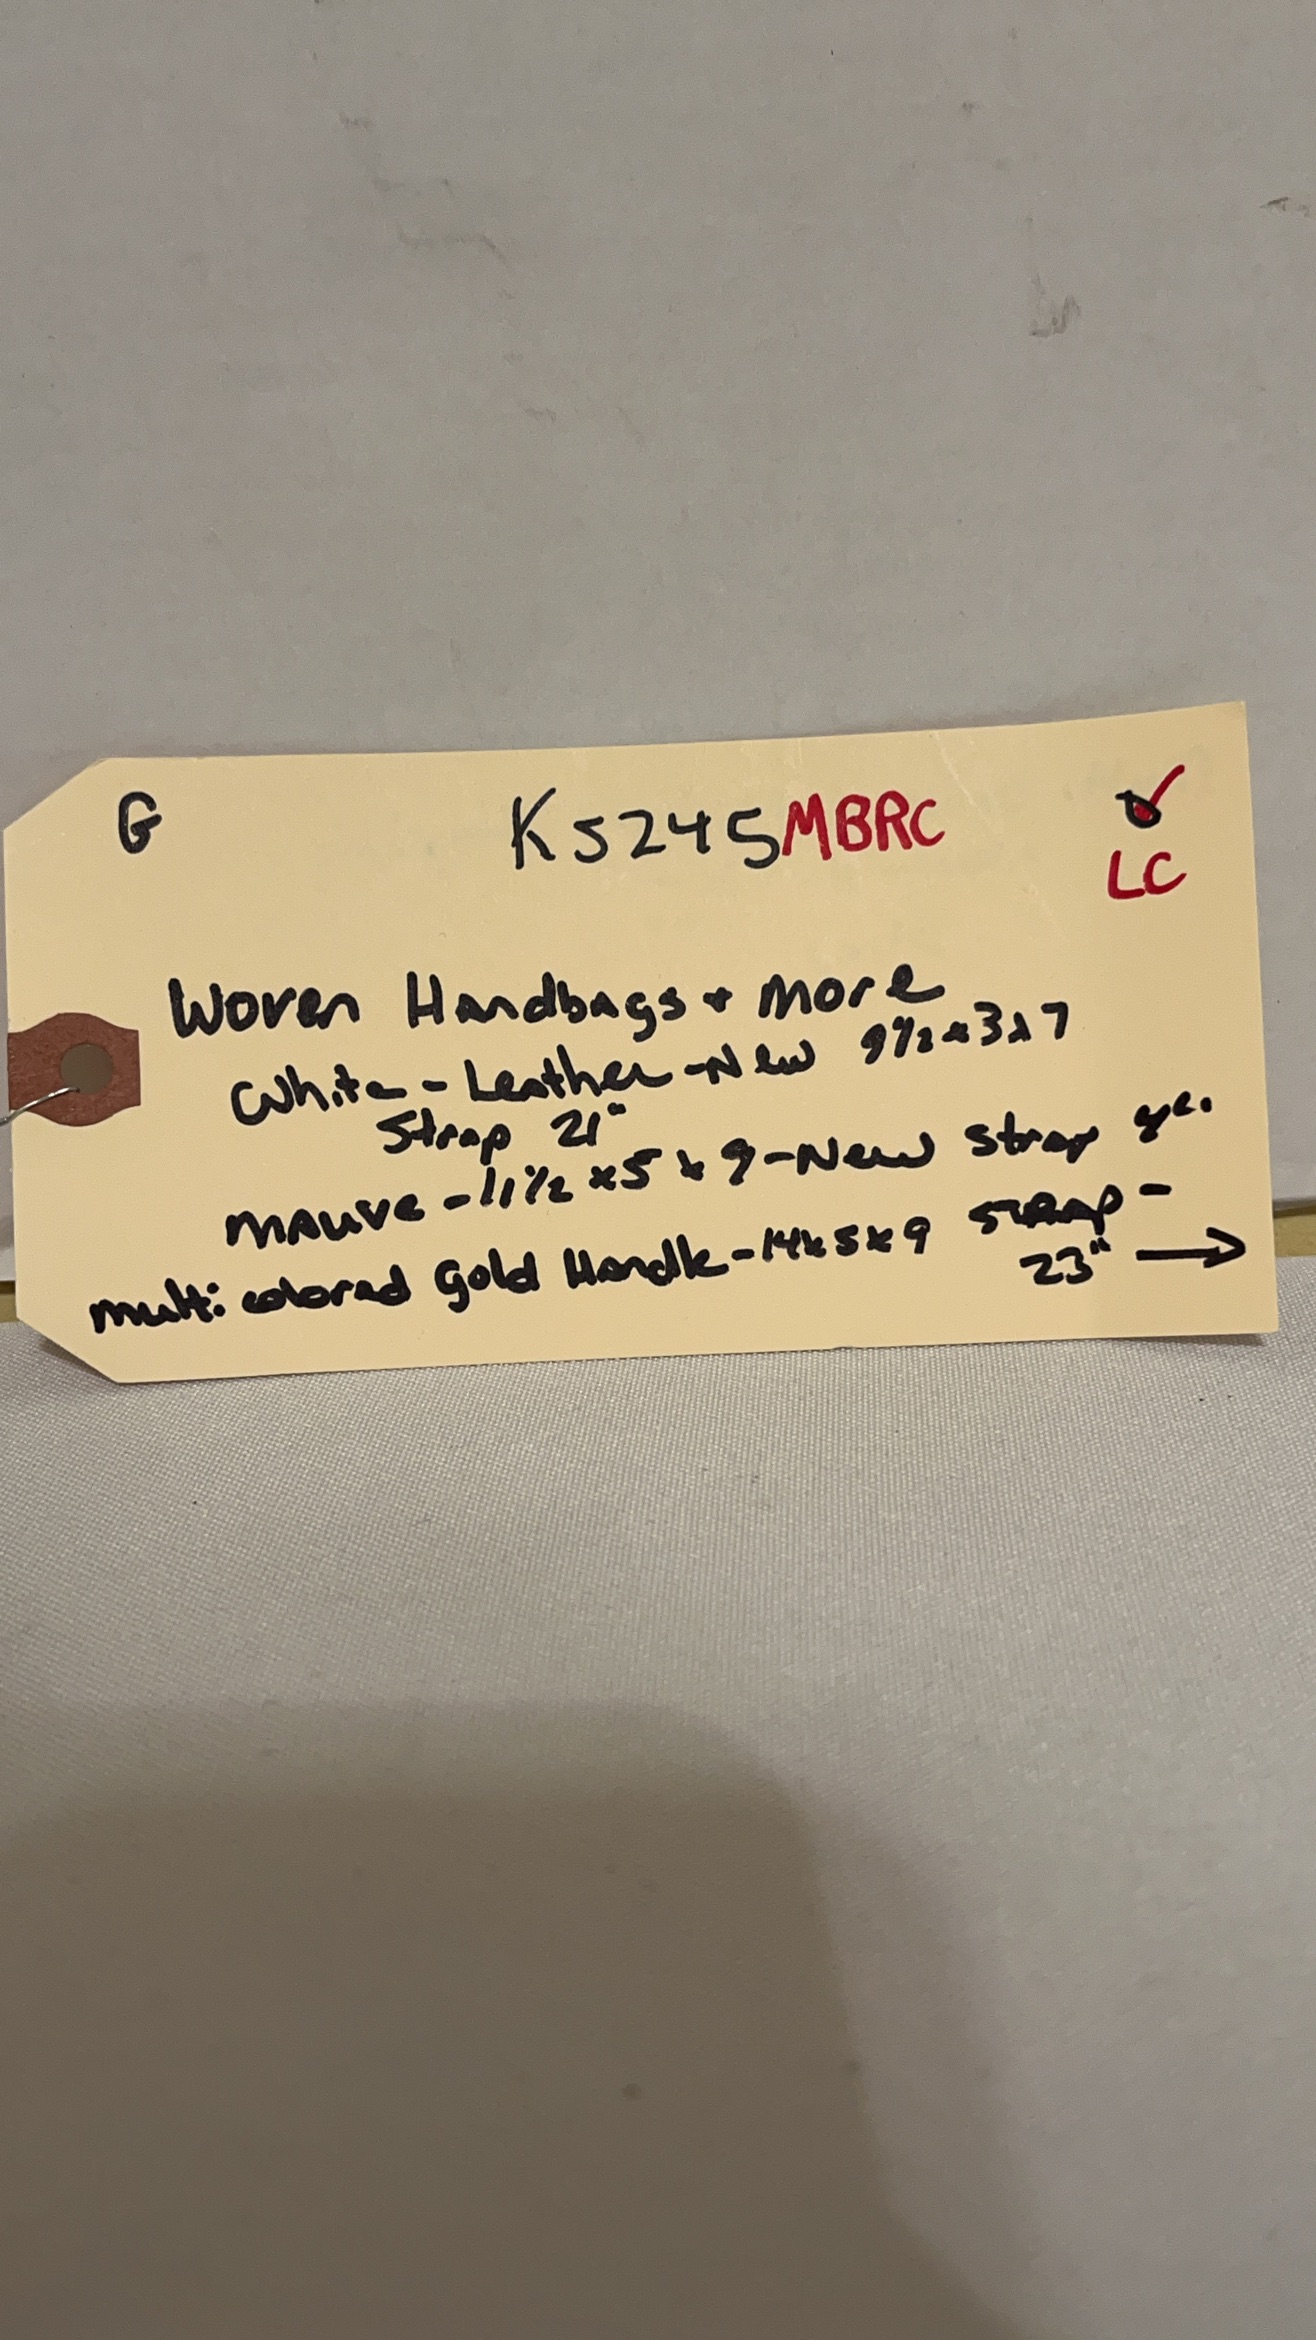 G K5245MBRC
LC
Woven Handbags + more
White - Leather - New 9½ x 3 x 7
Strap 21"
Mauve - 11½ x 5 x 9 - New Strap
Multi colored Gold Handle - 14 x 5 x 9 Strap -
23" →